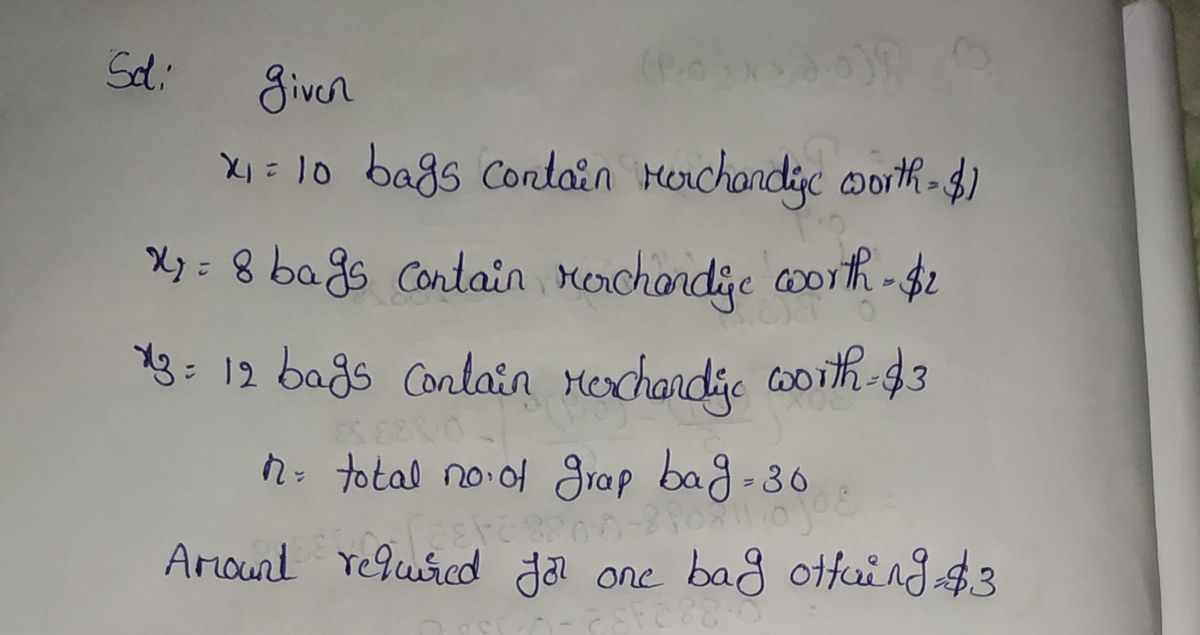 Sol:  given
x1 = 10 bags contain Merchandise worth = $1
x2 = 8 bags contain Merchandise worth = $2
x3 = 12 bags contain Merchandise worth = $3
n = total no. of grap bag = 30
Amount required for one bag offering = $3